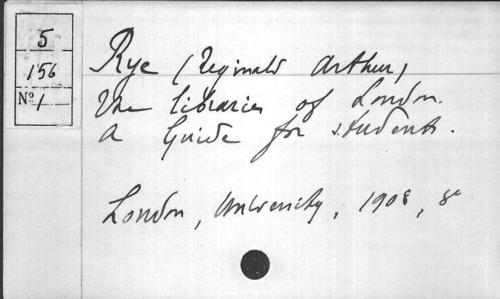 5
156
Nº 1
Rye (Reginald Arthur)
The libraries of London.
A Guide for students.
London, University, 1908, 8°